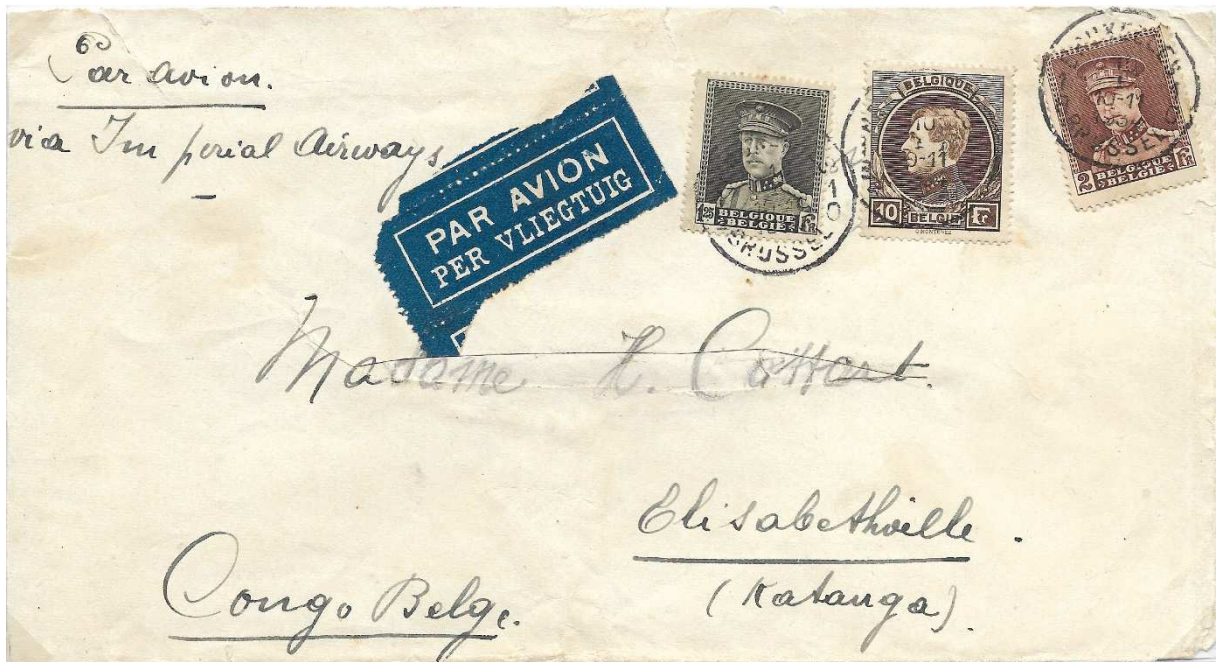 Par avion.
via Imperial Airways
PAR AVION
PER VLIEGTUIG
1.25 BELGIQUE Fr
BELGIË
BELGIQUE
10 BELGIË Fr
2 BELGIQUE Fr
BELGIË
BRUSSEL
BRUSSEL
Madame H. Cattart.
Elisabethville.
(Katanga).
Congo Belge.